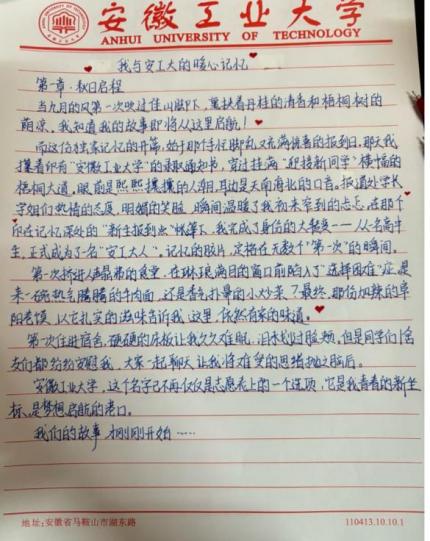 安徽工业大学
ANHUI UNIVERSITY OF TECHNOLOGY
我与安工大的暖心记忆
第一章·秋日启程
当九月的风第一次吹过佳山脚下,裹挟着丹桂的清香和梧桐树的
荫凉,我知道我的故事即将从这里启航!
而这份独家记忆的开篇,始于那个忙乱又充满惊喜的报到日,那天我
攥着印有“安徽工业大学”的录取通知书,穿过挂满“迎接新同学”横幅的
梧桐大道,眼前是熙熙攘攘的人潮,耳边是天南海北的口音。报道处学长
学姐们热情的态度,明媚的笑脸,瞬间温暖了我初来乍到的忐忑,在那个
印在记忆深处的“新生报到点”帐篷下,我完成了身份的大转变——从一名高中
生,正式成为了一名“安工大人”。记忆的胶片,定格在无数个“第一次”的瞬间。
第一次挤进人声鼎沸的食堂,在琳琅满目的窗口前陷入了“选择困难”症,是
来一碗热气腾腾的牛肉面,还是香气扑鼻的小炒菜?最终,那份加辣的阜
阳卷馍,以它扎实的滋味告诉我:这里,依然有家的味道。
第一次住进宿舍,硬硬的床板让我久久难眠,泪水划过脸颊,但是同学们、舍
友们都纷纷安慰我,大家一起聊天让我将难受的思绪抛之脑后。
安徽工业大学,这个名字已不再仅仅是志愿表上的一个选项,它是我青春的新坐
标,是梦想启航的港口。
我们的故事,才刚刚开始……
地址:安徽省马鞍山市湖东路
110413.10.10.1